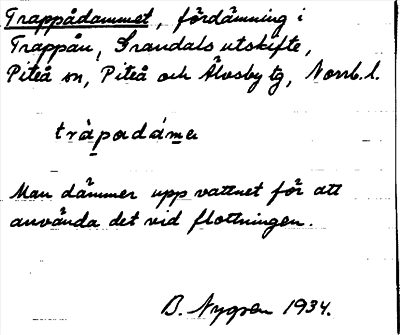 Trappådammet, fördämning i
Trappån, Svandals utskifte,
Piteå sn, Piteå och Älvsby tg, Norrb. l.
tràpadáma
Man dämmer upp vattnet för att
använda det vid flottningen.
B. Nygren 1934.